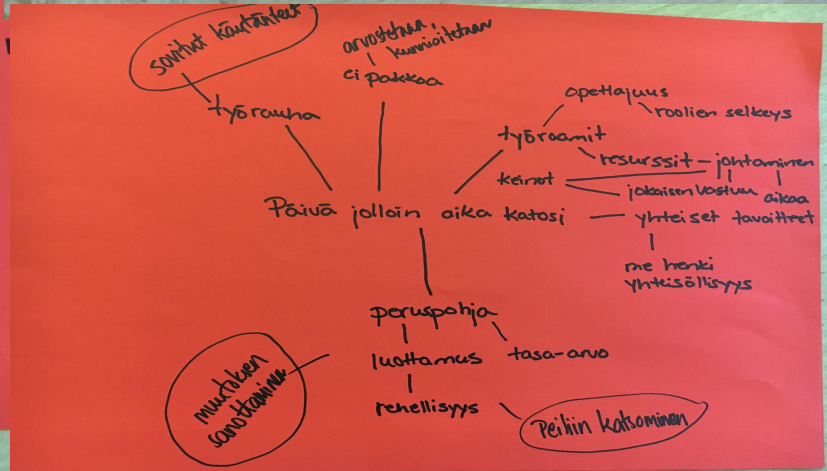 sovitut käytänteet
arvostetaan,
kunnioitetaan
ei pakkoa
työrauha
opettajuus
roolien selkeys
työraamit
resurssit – johtaminen
keinot
jokaisen vastuu
aikaa
Päivä jolloin aika katosi
yhteiset tavoitteet
me henki
yhteisöllisyys
peruspohja
luottamus
tasa-arvo
muutoksen
sanottaminen
rehellisyys
Peiliin katsominen